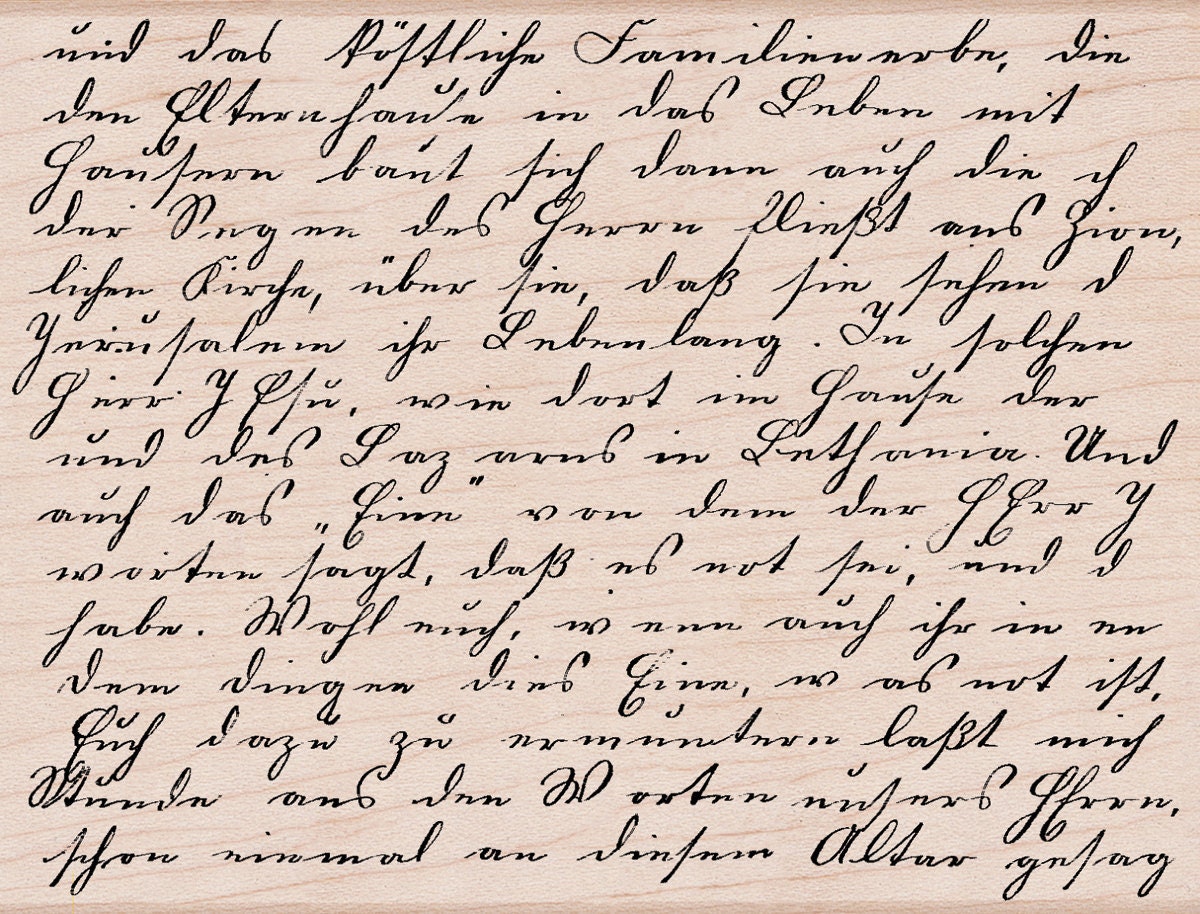 und das köstliche Familienerbe, die
den Elternhause in das Leben mit
Hausern baut sich dann auch die ch
der Segen des Herrn fließt aus Zion,
lichen Kirche, über sie, daß sie sehen d
Jerusalem ihr Lebenlang. In solchen
Herr JEsu, wie dort im Hause der
und des Lazarus in Bethania. Und
auch das „Eine" von dem der HErr J
worten sagt, daß es not sei, und d
habe. Wohl euch, wenn auch ihr in en
dem dingen dies Eine, was not ist,
Euch dazu zu ermuntern laßt mich
Stunde aus den Worten unsers HErrn,
schon einmal an diesem Altar gesag